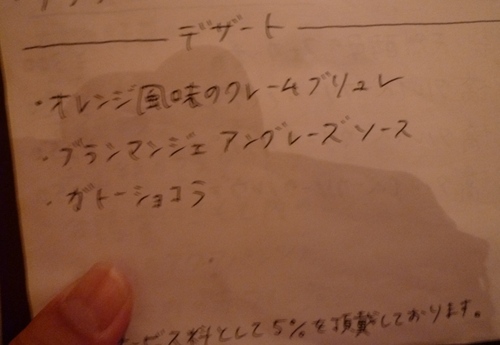 デザート
・オレンジ風味のクレームブリュレ
・ブランマンジェ アングレーズソース
・ガトーショコラ
ービス料として5%を頂戴しております。